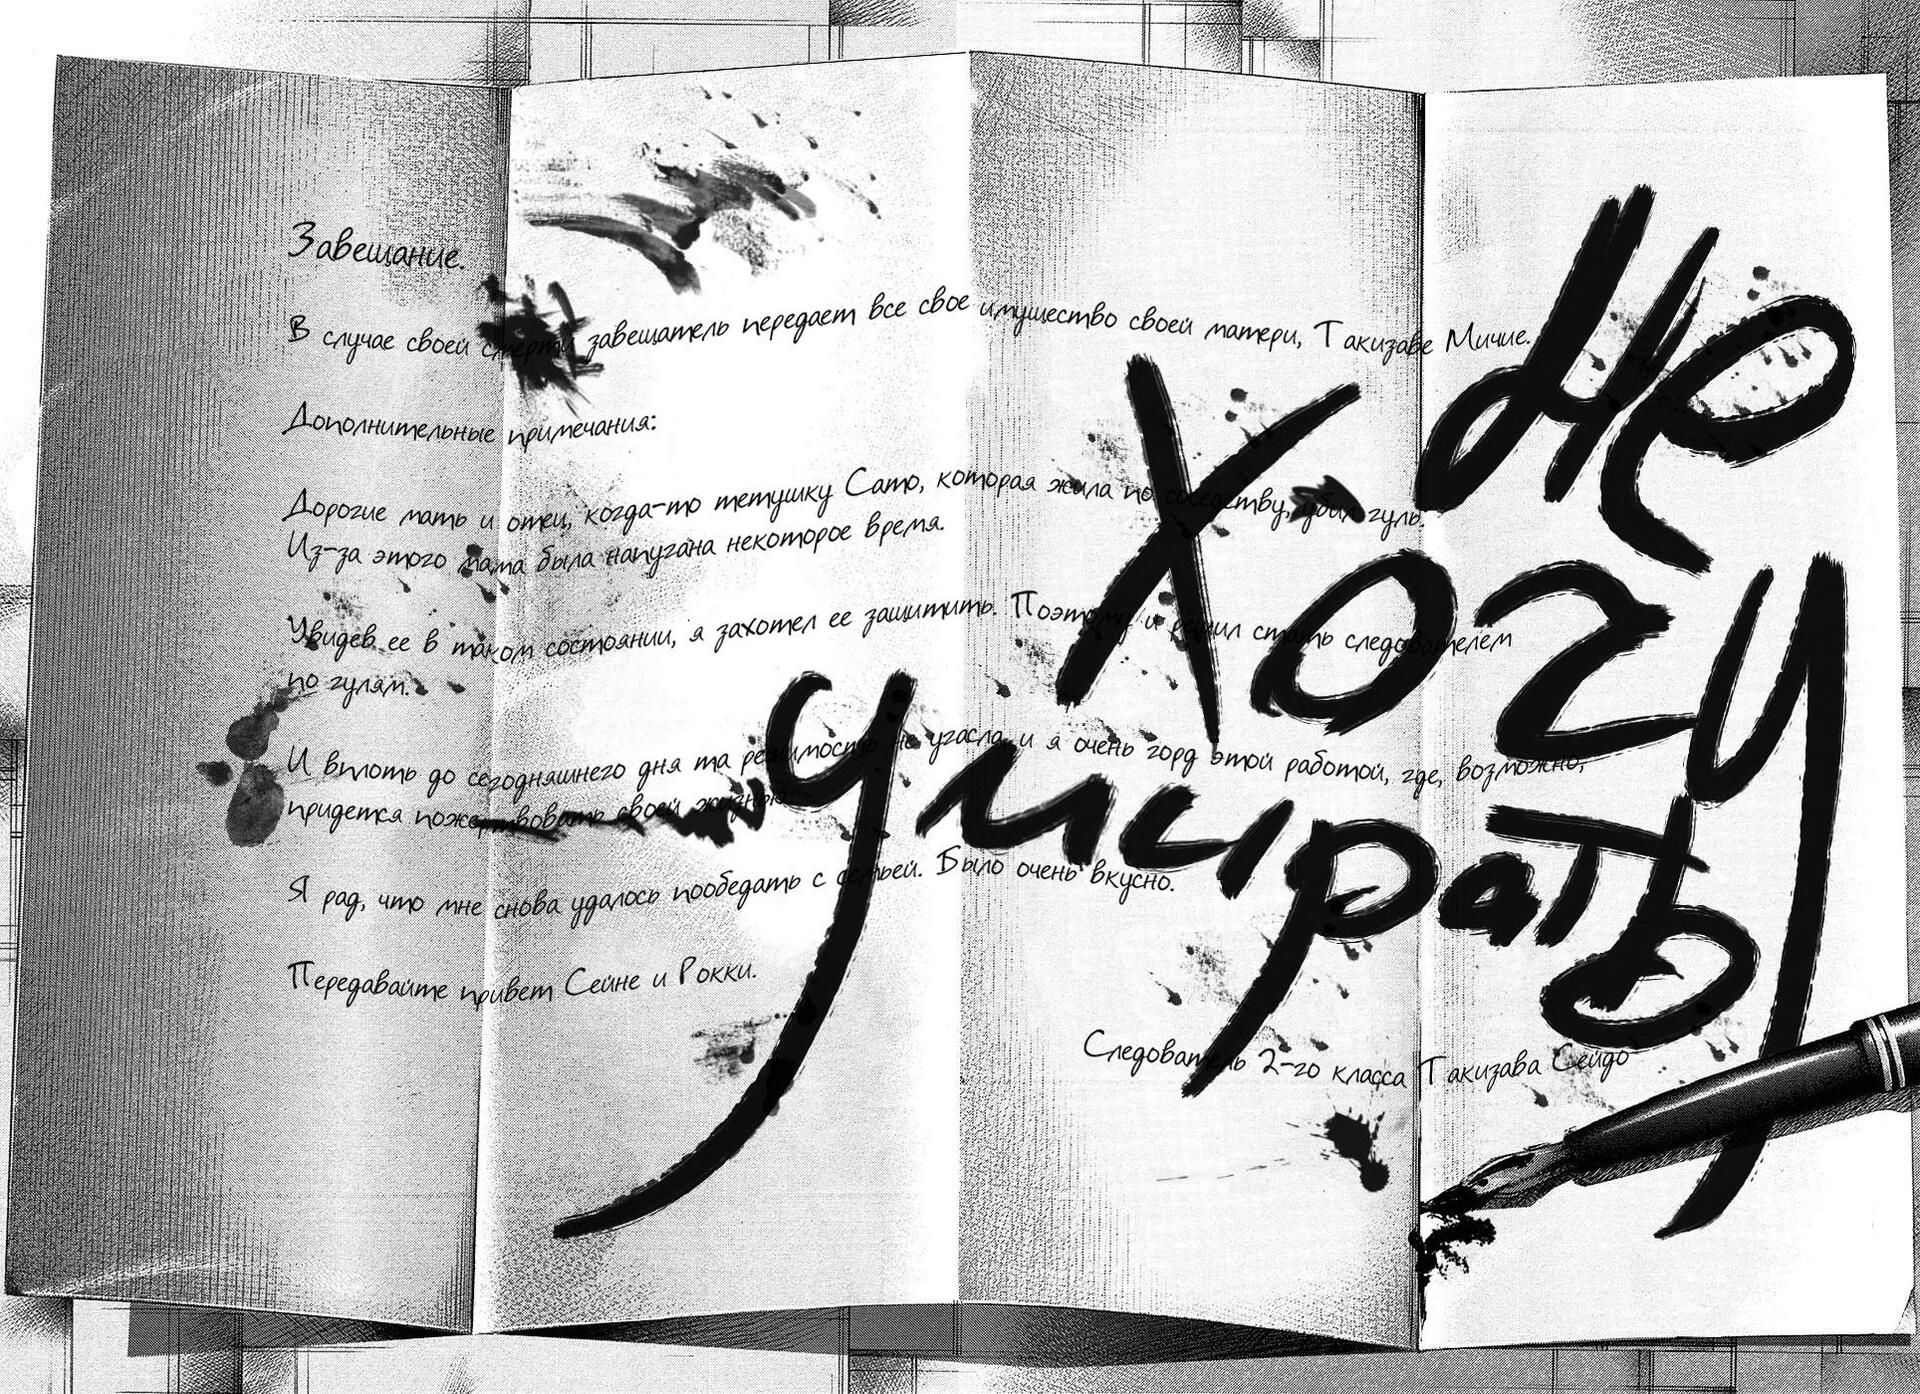 Завещание.
В случае своей смерти завещатель передает все свое имущество своей матери, Такизаве Мичие.
Дополнительные примечания:
Дорогие мать и отец, когда-то тетушку Сато, которая жила по соседству, убил гуль.
Из-за этого мама была напугана некоторое время.
Увидев ее в таком состоянии, я захотел ее защитить. Поэтому и решил стать следователем
по гулям.
И вплоть до сегодняшнего дня та решимость не угасла, и я очень горд этой работой, где, возможно,
придется пожертвовать своей жизнью.
Я рад, что мне снова удалось пообедать с семьей. Было очень вкусно.
Передавайте привет Сейне и Рокки.
Следователь 2-го класса Такизава Сейдо
Не
Хочу
умирать